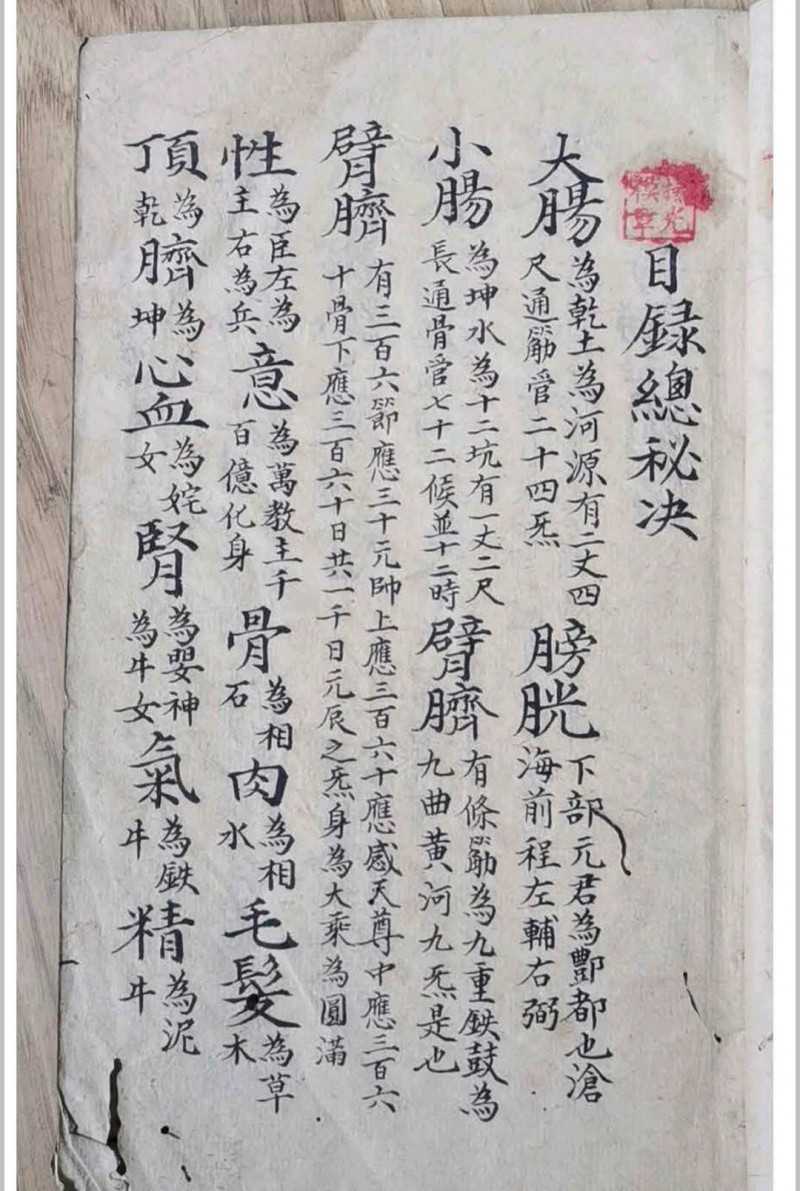 目録總秘决
大腸為乾土為河源有二丈四尺通觔管二十四炁膀胱下部元君為酆都也滄海前程左輔右弼
小腸為坤水為十二坑有一丈二尺長通骨管七十二候並十二時臂臍有條觔為九重鉄鼓為九曲黃河九炁是也
臂臍有三百六節應三十元帥上應三百六十應感天尊中應三百六十骨下應三百六十日共一千日元辰之炁身為大乘為圓滿
性為臣左為主右為兵意為萬教主千百億化身骨為相石肉為相水毛髮為草木
頂為乾臍為坤心血為姹女腎為嬰神為牛女氣為鉄牛精為泥牛